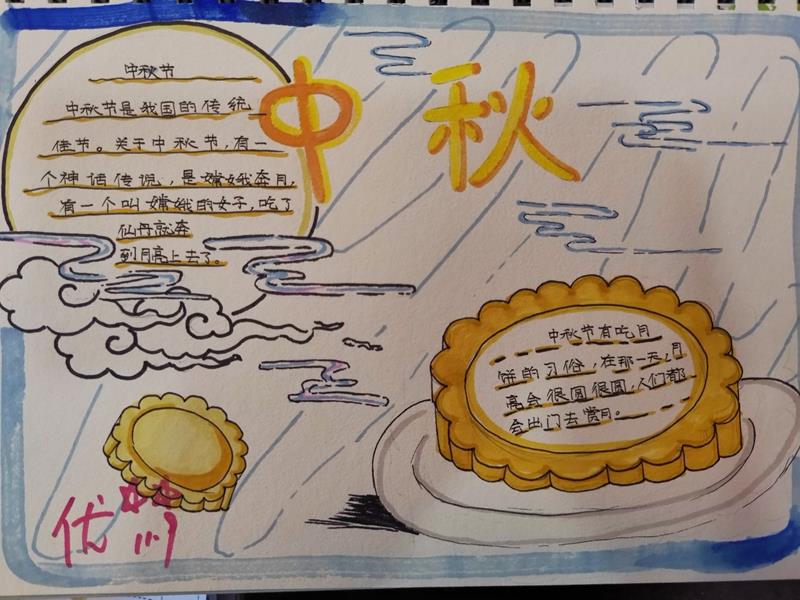 中秋
中秋节
中秋节是我国的传统
佳节。关于中秋节,有一
个神话传说,是嫦娥奔月,
有一个叫嫦娥的女子,吃了
仙丹就奔
到月亮上去了。
中秋节有吃月
饼的习俗,在那一天,月
亮会很圆很圆,人们都
会出门去赏月。
优